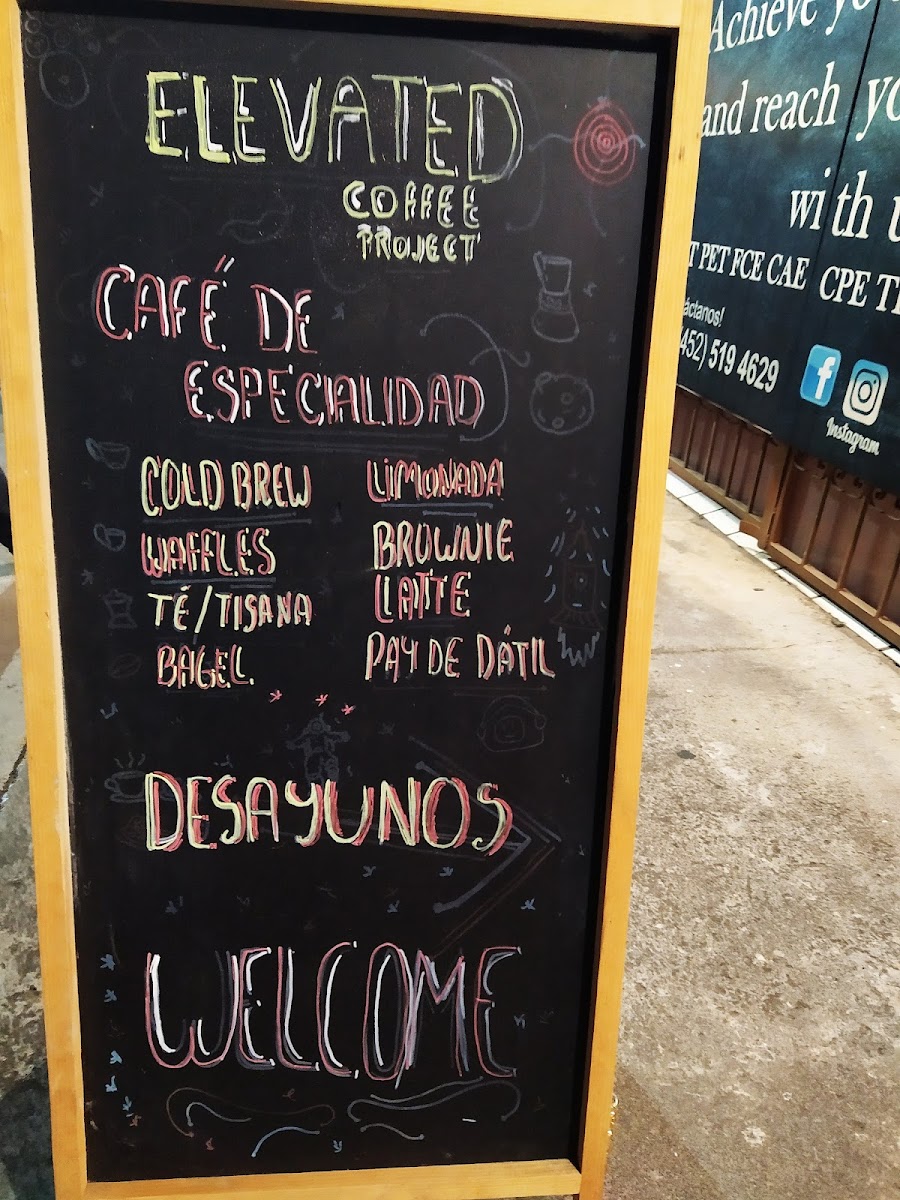 ELEVATED
COFFEE
PROJECT
CAFÉ DE
ESPECIALIDAD
COLD BREW
WAFFLES
TÉ/TISANA
BAGEL
LIMONADA
BROWNIE
LATTE
PAY DE DÁTIL
DESAYUNOS
WELCOME
Achieve
and reach
with
PET FCE CAE CPE
(452) 519 4629
Instagram